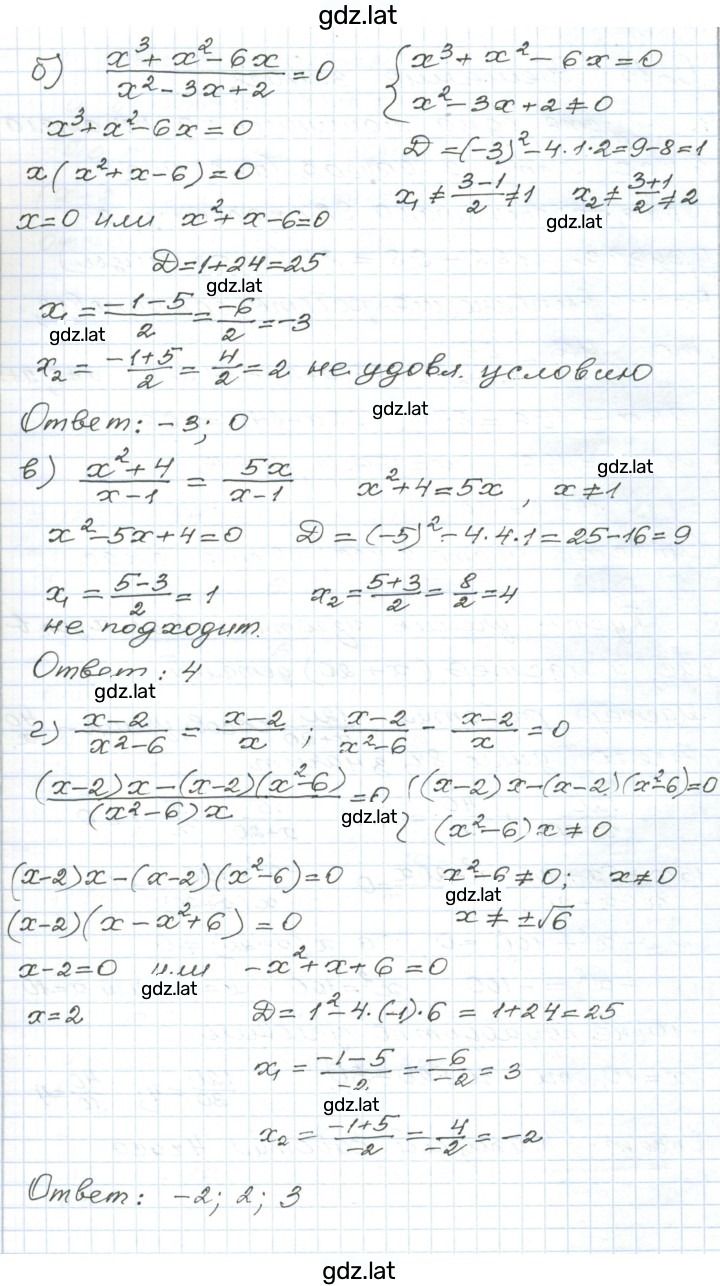 gdz.lat
б) (x³+x²-6x)/(x²-3x+2) = 0   { x³+x²-6x=0
x²-3x+2≠0
x³+x²-6x=0
Д=(-3)²-4·1·2=9-8=1
x(x²+x-6)=0
x₁≠(3-1)/2≠1   x₂≠(3+1)/2≠2
gdz.lat
x=0 или x²+x-6=0
Д=1+24=25
gdz.lat
x₁=(-1-5)/2=-6/2=-3
gdz.lat
x₂=(-1+5)/2=4/2=2 не удовл. условию
gdz.lat
Ответ: -3; 0
в) (x²+4)/(x-1) = 5x/(x-1)   x²+4=5x, x≠1
gdz.lat
x²-5x+4=0   Д=(-5)²-4·4·1=25-16=9
x₁=(5-3)/2=1   x₂=(5+3)/2=8/2=4
не подходит.
Ответ: 4
gdz.lat
г) (x-2)/(x²-6) = (x-2)/x; (x-2)/(x²-6) - (x-2)/x = 0
((x-2)x-(x-2)(x²-6))/((x²-6)x) = 0   { (x-2)x-(x-2)(x²-6)=0
gdz.lat
(x²-6)x≠0
(x-2)x-(x-2)(x²-6)=0   x²-6≠0; x≠0
gdz.lat
(x-2)(x-x²+6)=0   x≠±√6
x-2=0 или -x²+x+6=0
gdz.lat
x=2   Д=1²-4·(-1)·6=1+24=25
x₁=(-1-5)/-2=-6/-2=3
gdz.lat
x₂=(-1+5)/-2=4/-2=-2
Ответ: -2; 2; 3
gdz.lat